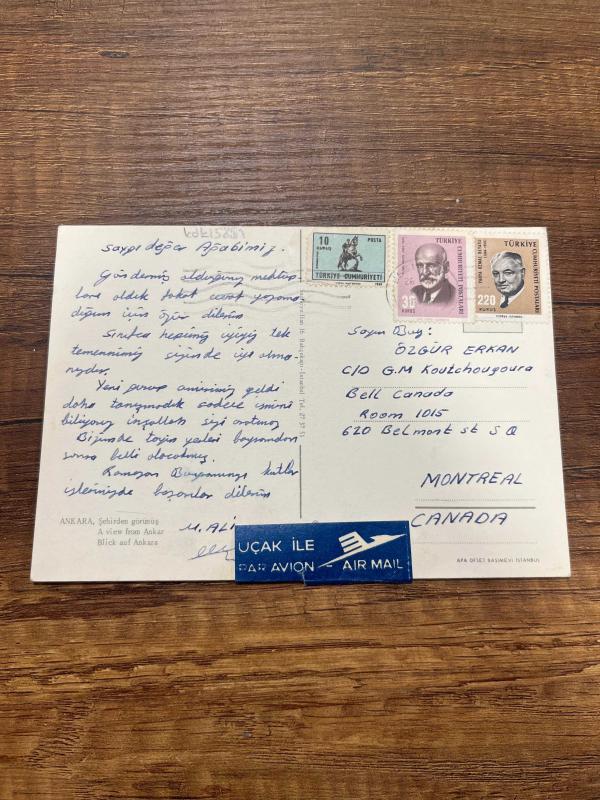 Saygı değer Ağabimiz.
Göndermiş olduğunuz mektup-
ları aldık fakat cevap yazama-
dığım için özür dilerim
Sınıfca hepimiz iyiyiz tek
temennimiz sizinde iyi olma-
nızdır.
Yeni gurup amirimiz geldi
daha tanışmadık sadece ismini
biliyoruz inşallah sizi aratmaz
Bizimde tayin yerleri bayramdan
sonra belli olacakmış.
Ramazan Bayramınızı kutlar
işlerinizde başarılar dilerim
M. ALİ
ANKARA, Şehirden görünüş
A view from Ankar
Blick auf Ankara
10
KURUŞ
POSTA
TÜRKİYE CUMHURİYETİ
TÜRKİYE
CUMHURİYETİ POSTALARI
30
KURUŞ
TÜRKİYE
CUMHURİYETİ POSTALARI
220
KURUŞ
Sayın Bay:
ÖZGÜR ERKAN
C/O G.M Koutchougoura
Bell Canada
Room 1015
620 Belmont st S Q
MONTREAL
CANADA
UÇAK İLE
PAR AVION - AIR MAIL
APA OFSET BASIMEVİ İSTANBUL